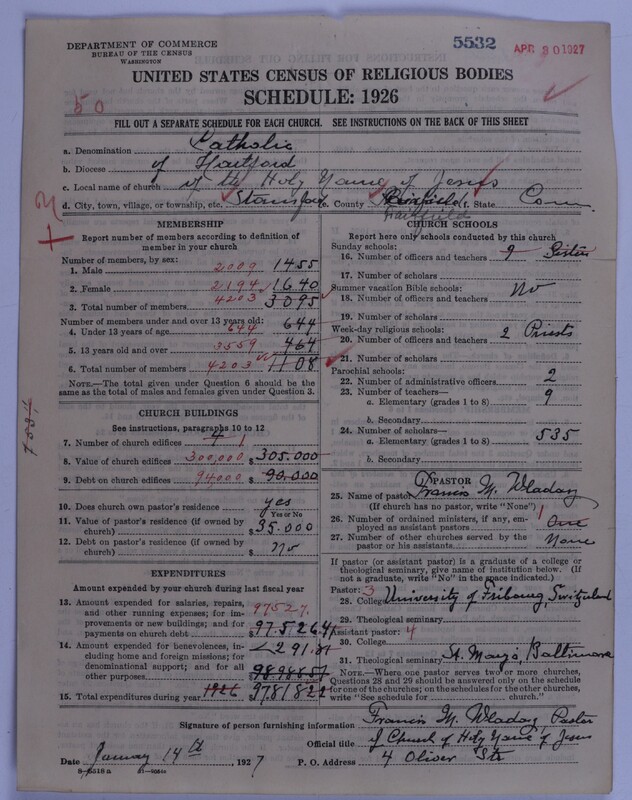 DEPARTMENT OF COMMERCE
BUREAU OF THE CENSUS
WASHINGTON
5532
APR 30 1927
UNITED STATES CENSUS OF RELIGIOUS BODIES
SCHEDULE: 1926
50
FILL OUT A SEPARATE SCHEDULE FOR EACH CHURCH. SEE INSTRUCTIONS ON THE BACK OF THIS SHEET
a. Denomination Catholic
b. Diocese of Hartford
c. Local name of church of the Holy Name of Jesus
d. City, town, village, or township, etc. Stamford e. County Fairfield f. State Conn.
MEMBERSHIP
Report number of members according to definition of member in your church
Number of members, by sex:
1. Male 2009 1455
2. Female 2194 1640
3. Total number of members 4203 3095
Number of members under and over 13 years old:
4. Under 13 years of age 644 644
5. 13 years old and over 3559 464
6. Total number of members 4203 1108
NOTE.—The total given under Question 6 should be the
same as the total of males and females given under Question 3.
CHURCH BUILDINGS
See instructions, paragraphs 10 to 12
7. Number of church edifices 1
8. Value of church edifices 300,000 $305.000
9. Debt on church edifices 94000 $90.000
10. Does church own pastor's residence yes
Yes or No
11. Value of pastor's residence (if owned by
church) $35.000
12. Debt on pastor's residence (if owned by
church) $ no
EXPENDITURES
Amount expended by your church during last fiscal year
13. Amount expended for salaries, repairs,
and other running expenses; for im-
provements or new buildings; and for
payments on church debt 97527. $97.526.41
14. Amount expended for benevolences, in-
cluding home and foreign missions; for
denominational support; and for all
other purposes $
15. Total expenditures during year 1926 $
Date January 14th, 1927
CHURCH SCHOOLS
Report here only schools conducted by this church
Sunday schools:
16. Number of officers and teachers 9 Sisters
17. Number of scholars
Summer vacation Bible schools:
18. Number of officers and teachers No
19. Number of scholars
Week-day religious schools:
20. Number of officers and teachers 2 Priests
21. Number of scholars
Parochial schools:
22. Number of administrative officers 2
23. Number of teachers—
a. Elementary (grades 1 to 8) 9
b. Secondary
24. Number of scholars—
a. Elementary (grades 1 to 8) 535
b. Secondary
PASTOR
25. Name of pastor Francis M. Wladasz
(If church has no pastor, write "None")
26. Number of ordained ministers, if any, em-
ployed as assistant pastors 1 One
27. Number of other churches served by the
pastor or his assistants None
If pastor (or assistant pastor) is a graduate of a college or
theological seminary, give name of institution below. (If
not a graduate, write "No" in the space indicated.)
Pastor: 3
28. College University of Fribourg, Switzerland
29. Theological seminary
Assistant pastor: 4
30. College
31. Theological seminary St. Mary's, Baltimore
NOTE.—Where one pastor serves two or more churches,
Questions 28 and 29 should be answered only on the schedule
for one of the churches; on the schedules for the other churches,
write "See schedule for church."
Signature of person furnishing information Francis M. Wladasz, Pastor
Official title of Church of Holy Name of Jesus
P. O. Address 4 Oliver Str.